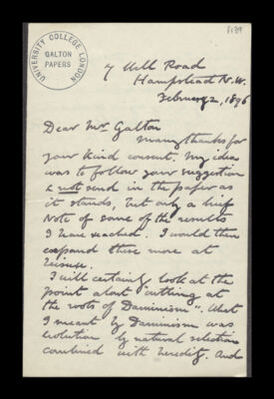 UNIVERSITY COLLEGE LONDON
GALTON
PAPERS
7 Well Road
Hampstead N.W.
February 2, 1896
Dear Mr Galton
Many thanks for
your kind consent. My idea
was to follow your suggestion
& not send in the paper as
it stands, but only a brief
Note of some of the results
I have reached. I would then
expand these more at
leisure.
I will certainly look at the
point about "cutting at
the roots of Darwinism". What
I meant by Darwinism was
evolution by natural selection
combined with heredity. And